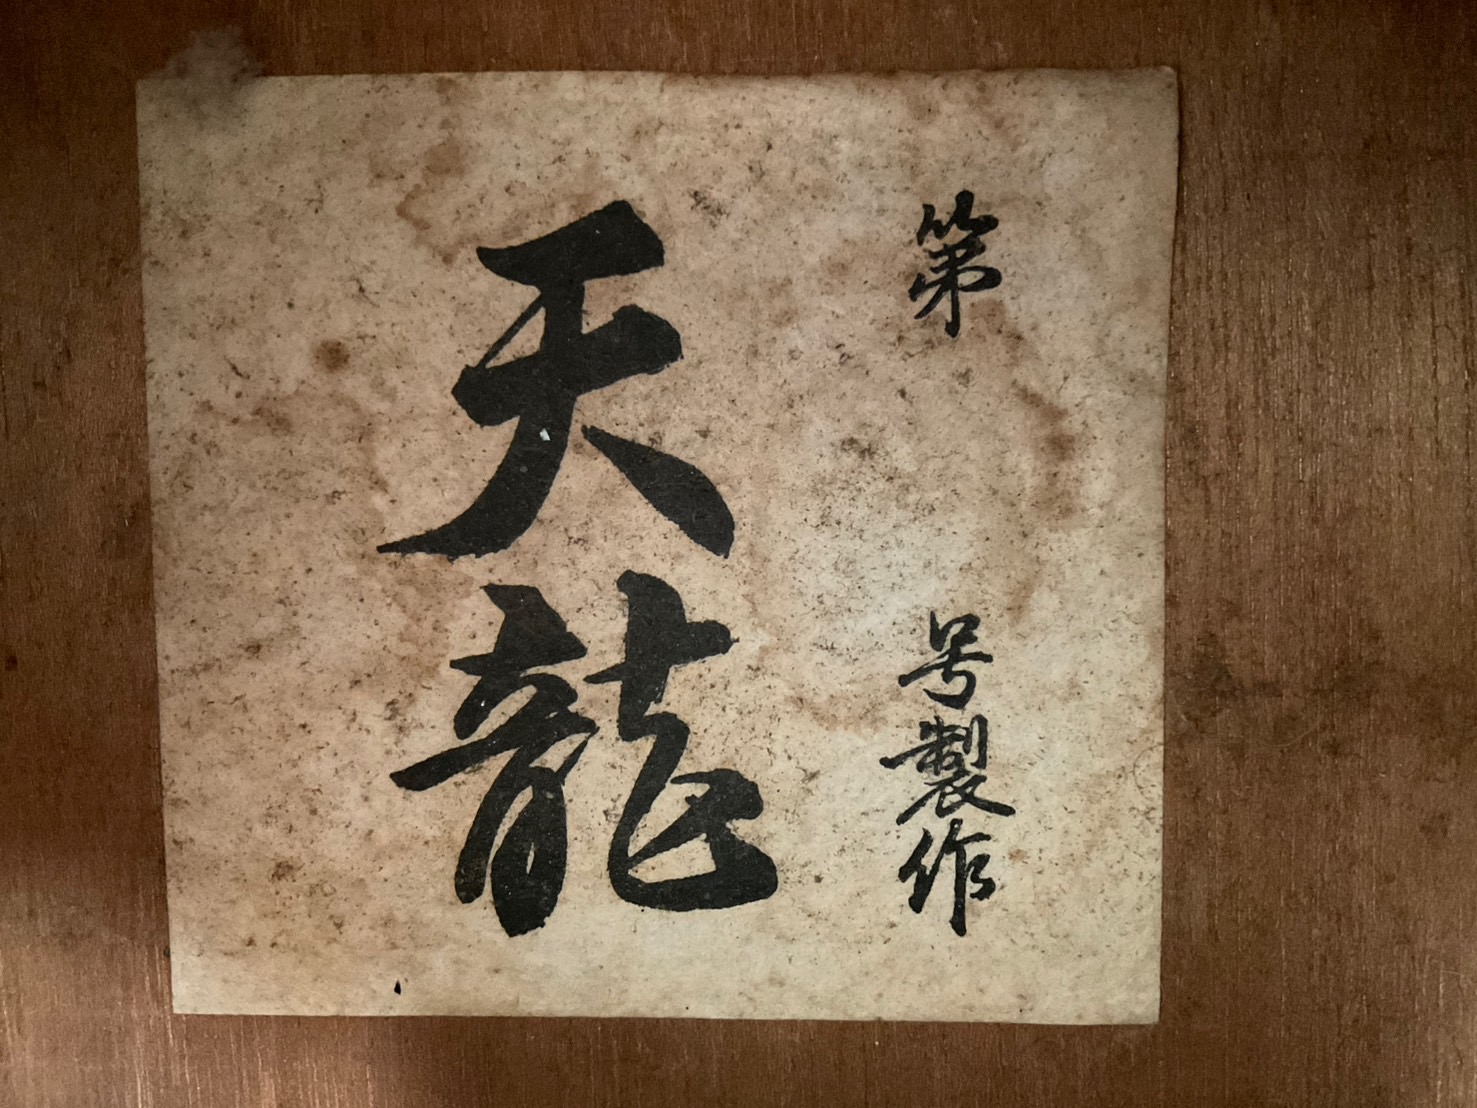 第 号製作
天龍